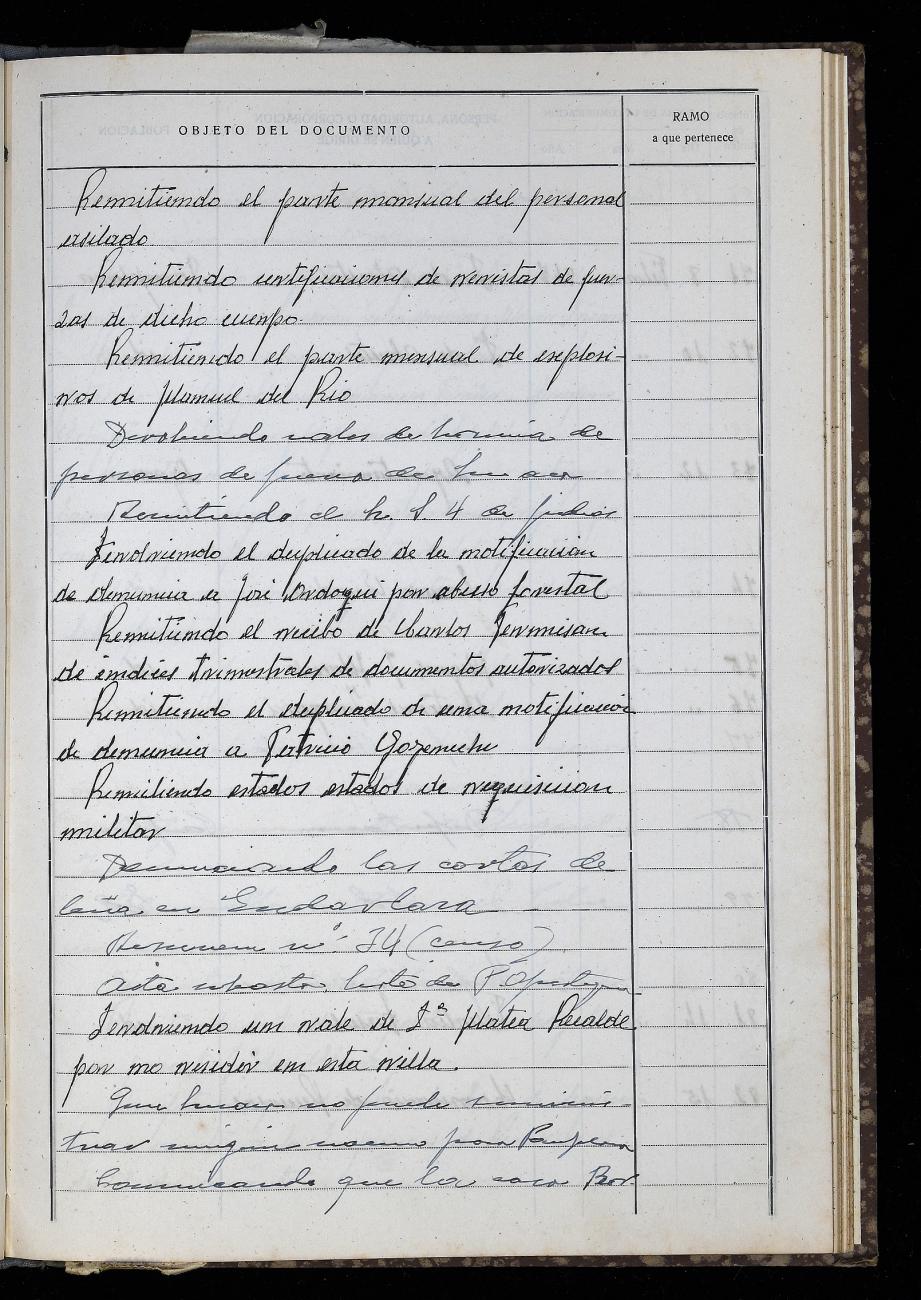 OBJETO DEL DOCUMENTO
RAMO
a que pertenece
Remitiendo el parte mansual del personal
asilado
Remitiendo certificaciones de revistas de fuer-
zas de dicho cuerpo.
Remitiendo el parte mensual de explosi-
vos de Manuel del Rio
Devolviendo vales de harina de
personas de fuera de
Remitiendo el h. S. 4 de
Devolviendo el duplicado de la notificación
de denuncia a José Ordoqui por abuso forestal
Remitiendo el recibo de Carlos
de indices trimestrales de documentos autorizados
Remitiendo el duplicado de una notificación
de denuncia a Patricio
Remitiendo estados estados de requisicion
militar
Denunciando las cortas de
leña en Endarlaza
Resumen nº 34 (censo)
Acta subasta lote de
Devolviendo un vale de Dª Recalde
por no residir en esta villa.
Que no puede suminis-
trar ningun para Pamplona
Comunicando que la casa Bor-